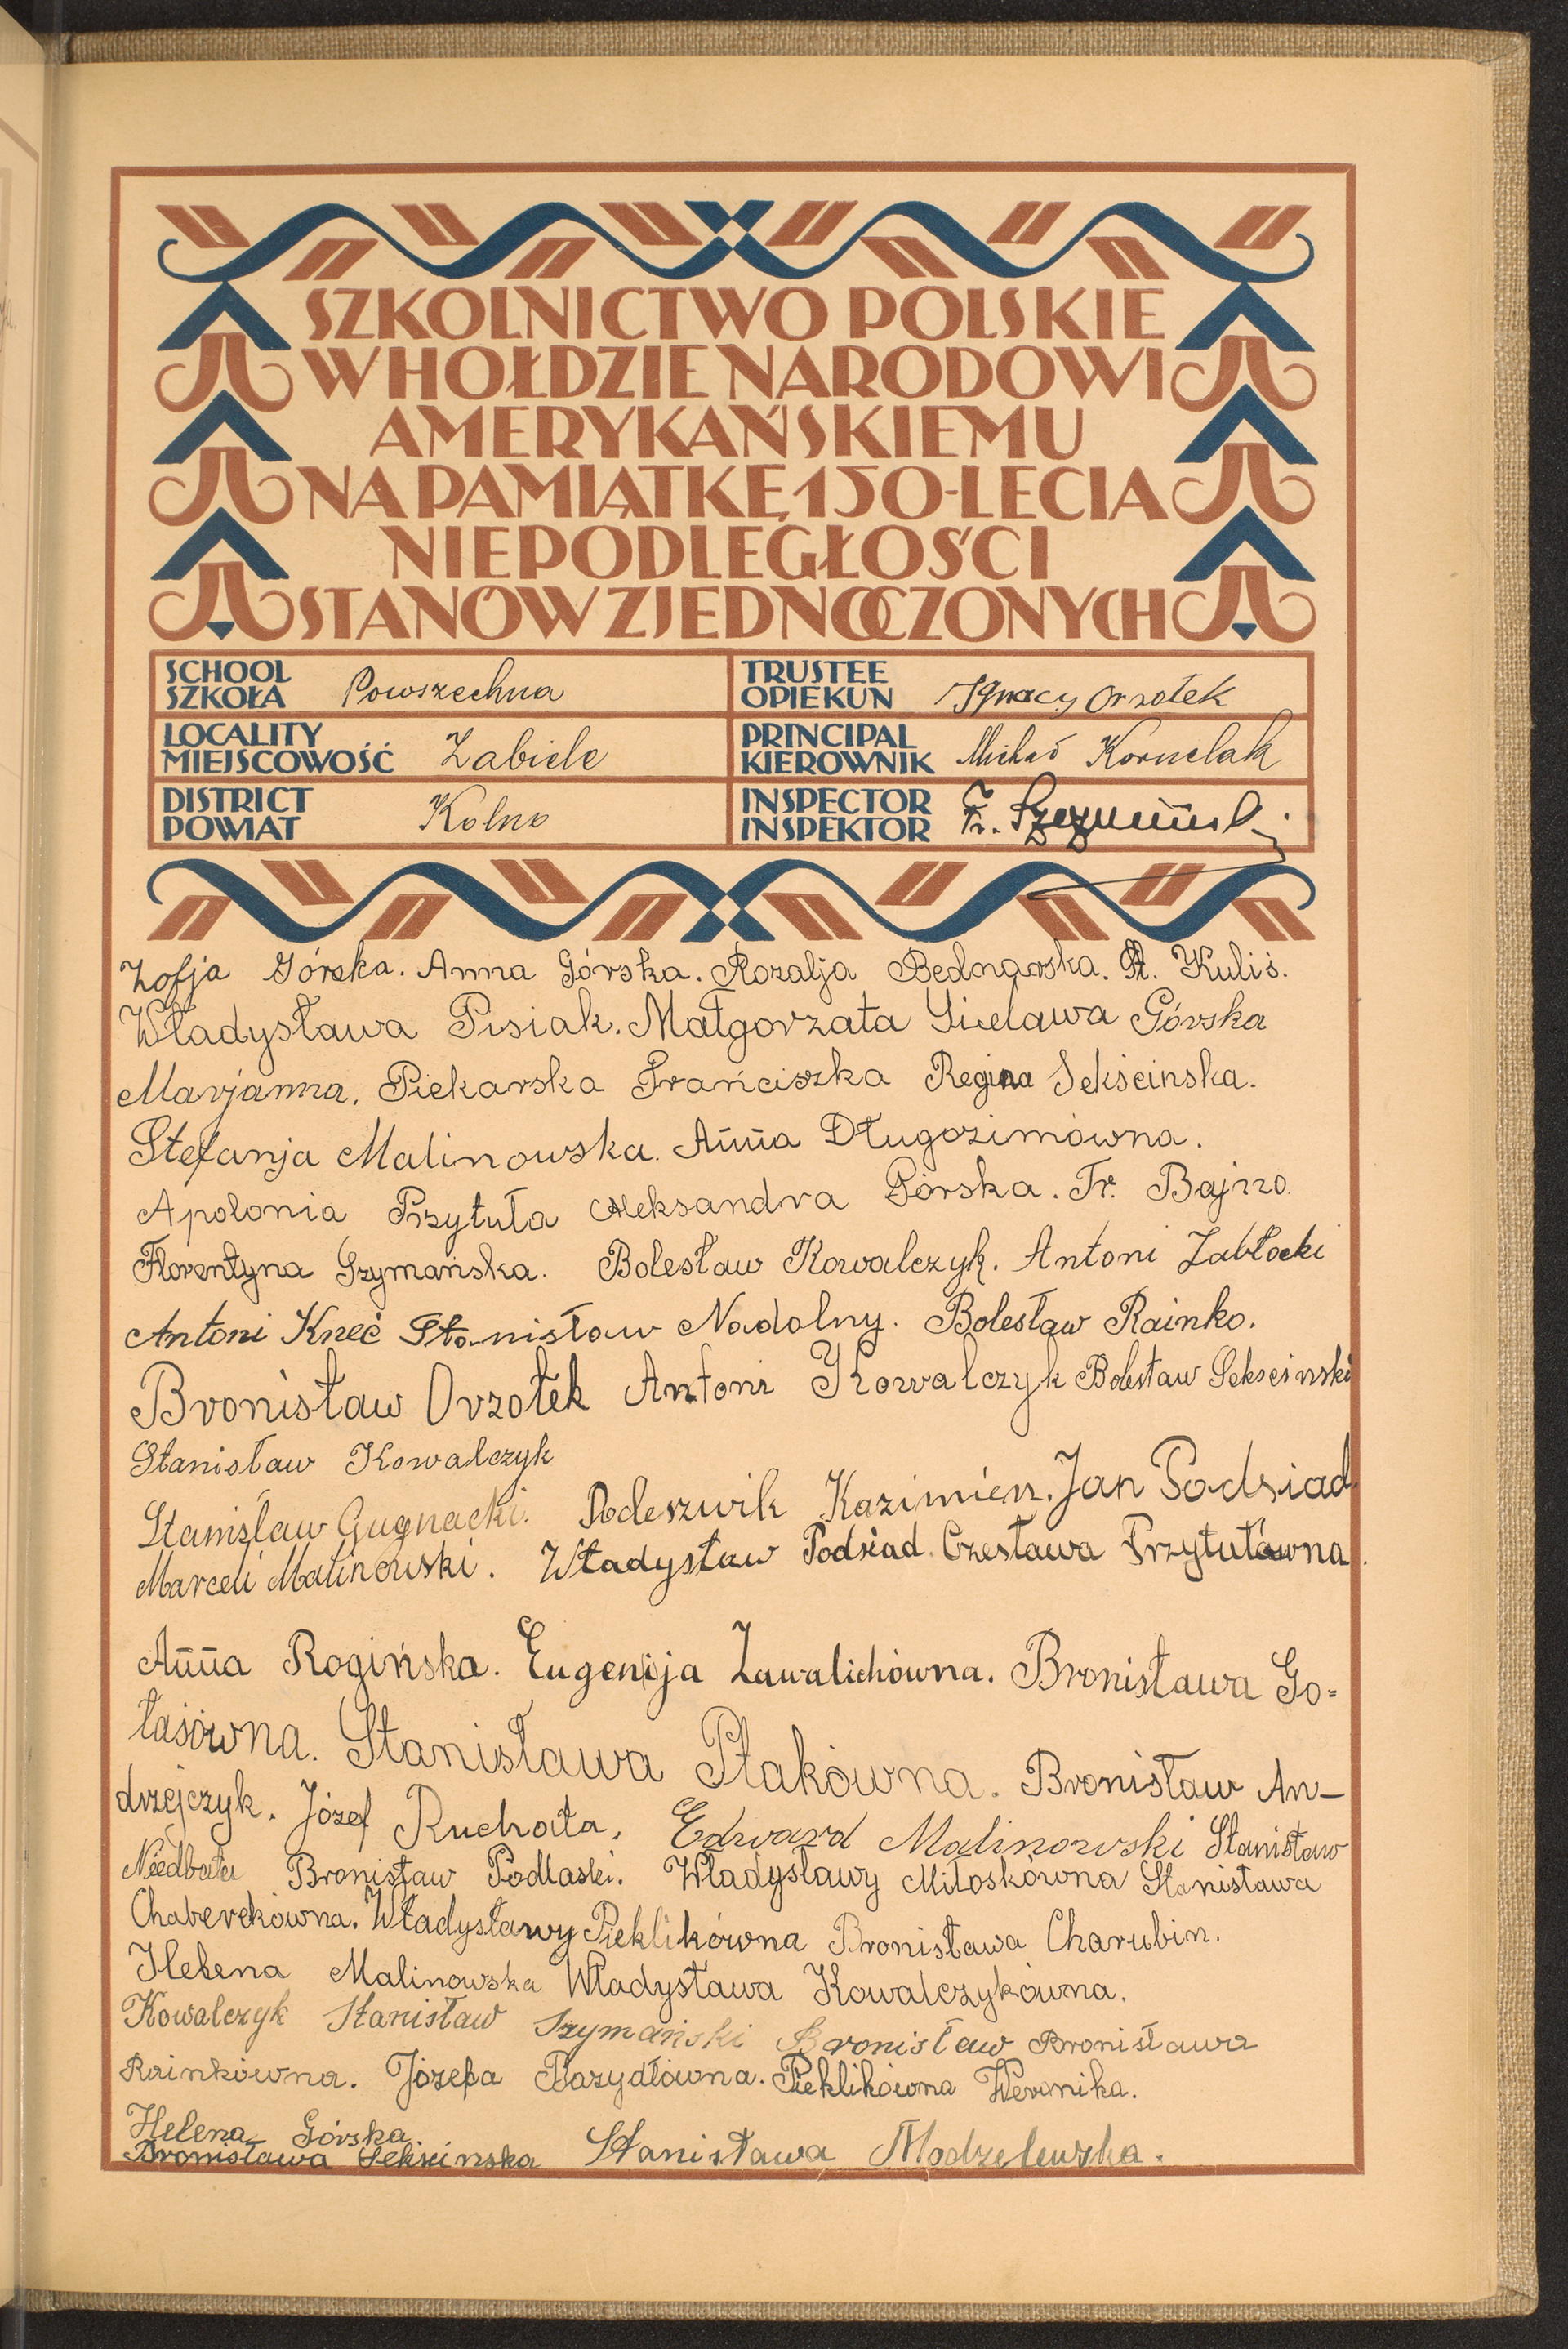 SZKOLNICTWO POLSKIE
W HOŁDZIE NARODOWI
AMERYKAŃSKIEMU
NA PAMIĄTKĘ 150-LECIA
NIEPODLEGŁOŚCI
STANÓW ZJEDNOCZONYCH
SCHOOL
SZKOŁA Powszechna
TRUSTEE
OPIEKUN Ignacy Orzołek
LOCALITY
MIEJSCOWOŚĆ Zabiele
PRINCIPAL
KIEROWNIK Michał Kornelak
DISTRICT
POWIAT Kolno
INSPECTOR
INSPEKTOR Fr.
Zofja Górska. Anna Górska. Rozalja Bednarska. St. Kuliś.
Władysława Pisiak. Małgorzata Sielawa Górska
Marjanna. Piekarska Frańciszka Regina Sekścinska.
Stefanja Malinowska. Anna Długozimówna.
Apolonia Przytuła Aleksandra Górska. Fr. Bajno.
Florentyna Szymańska. Bolesław Kowalczyk. Antoni Zabłocki
Antoni Kneć Stanisław Nadolny. Bolesław Rainko.
Bronisław Orzołek Antoni Kowalczyk Bolesław Sekscinski
Stanisław Kowalczyk
Stanisław Gugnacki. Podeszwik Kazimierz. Jan Podsiad
Marceli Malinowski. Władysław Podsiad. Czesława Przytułówna.
Anna Rogińska. Eugenija Zawalichówna. Bronisława Go=
łasówna. Stanisława Ptakówna. Bronisław An-
drzejczyk. Józef Ruchała. Edward Malinowski Stanisław
Niedbała Bronisław Podlaski. Władysławy Miłoskówna Stanisława
Chaberekówna. Władysławy Pieklikówna Bronisława Charubin.
Helena Malinowska Władysława Kowalczykówna.
Kowalczyk Stanisław Szymański Bronisław Bronisława
Rainkówna. Józefa Bazydłówna. Pieklikówna Weronika.
Helena Górska.
Bronisława Sekscinska Stanisława Modzelewska.